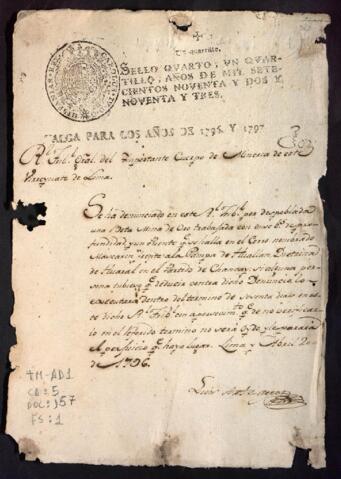 Un quartillo.
SELLO QUARTO, UN QUAR-
TILLO, AÑOS DE MIL SETE-
CIENTOS NOVENTA Y DOS Y
NOVENTA Y TRES.
VALGA PARA LOS AÑOS DE 1796. Y 1797
Rl. Tribl. Gral. del Importante Cuerpo de Mineria de este
Virreynato de Lima.
Se ha denunciado en este Rl. Tribl. por despoblada
una Beta Mina de Oro trabajada con
fundidad, y un que se halla en el Cerro nombrado
frente a la Pampa de Doctrina
de Huaral en el Partido de Chancay. Si alguna per-
sona tubiere qe. deducir contra dicho Denuncio lo
executará dentro del termino de Noventa dias en es-
te dicho Rl. Tribl. con apercevimto. qe. de no verificar
lo en el referido termino no será oydo y le parará
el perjuicio qe. haya lugar. Lima y Abril
de 1796.
TM-AD1
CA: 5
DOC: 157
FS: 1